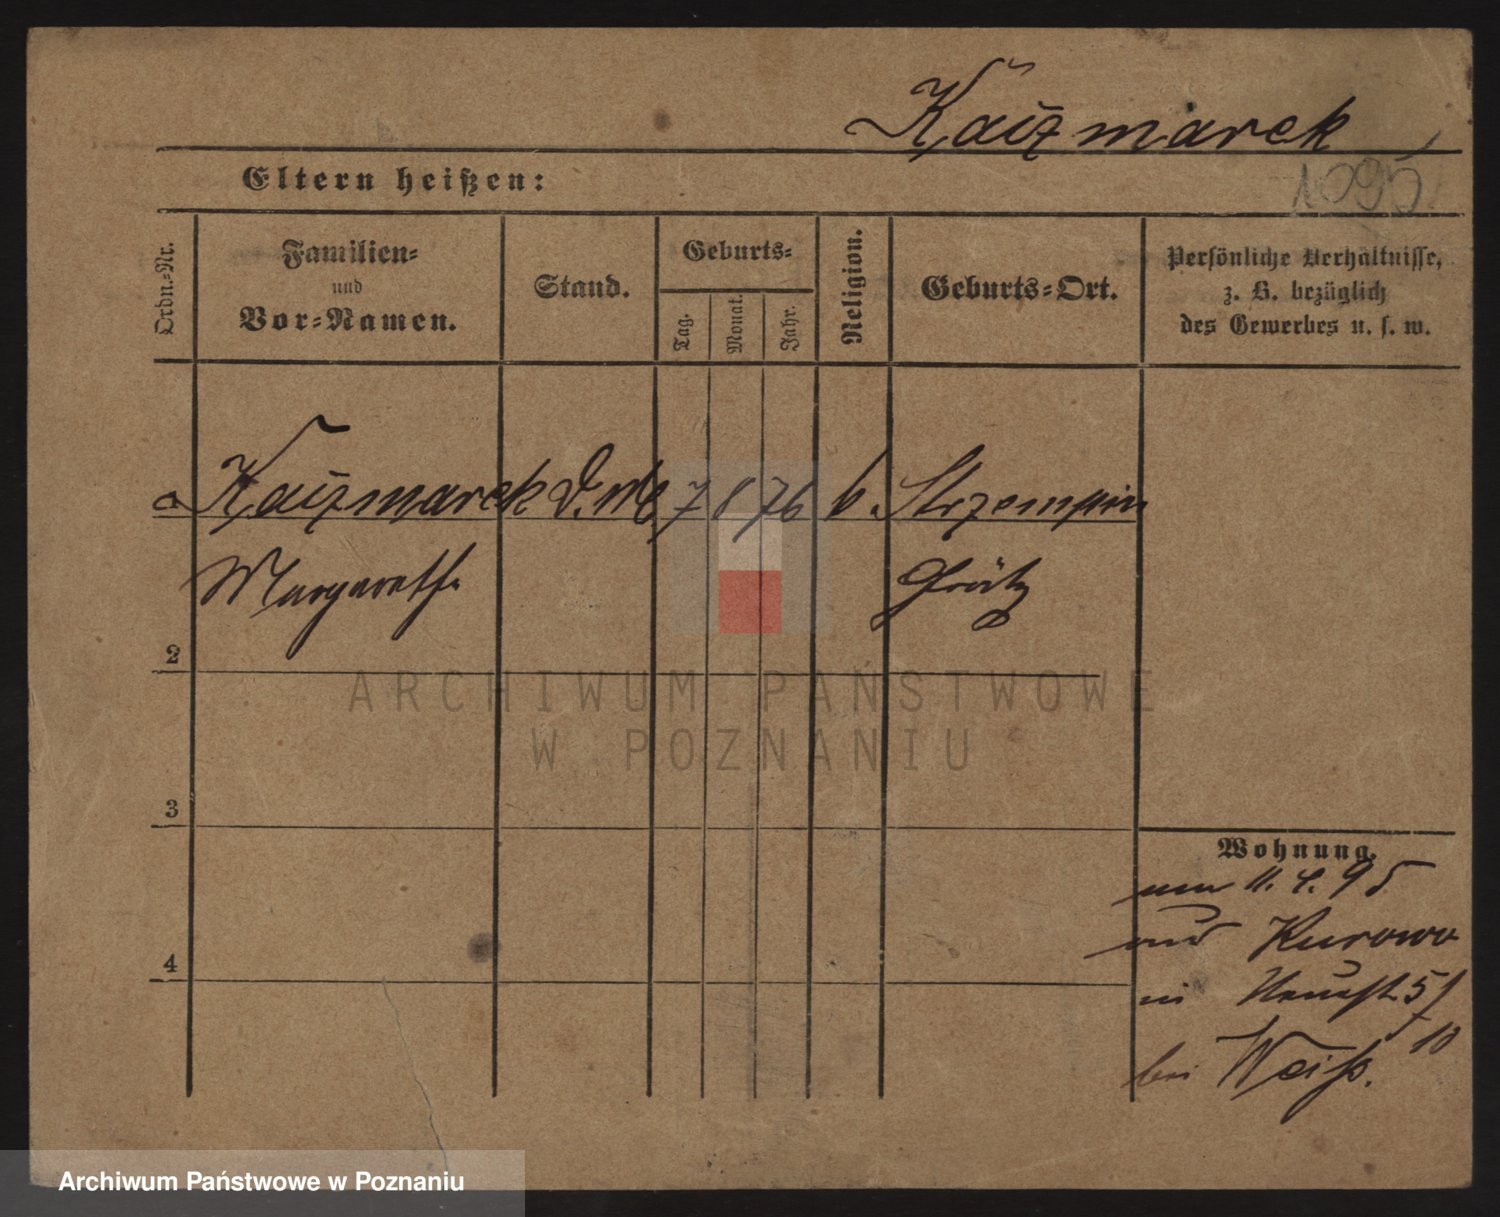 Kaczmarek
1095
Eltern heißen:
Ordn.-Nr.
Familien-
und
Vor-Namen.
Stand.
Geburts-
Tag.
Monat.
Jahr.
Religion.
Geburts-Ort.
Persönliche Verhältnisse,
z. B. bezüglich
des Gewerbes u. s. w.
Kaczmarek 7 8 76 k. Strzempin
Margareth Grätz
2
ARCHIWUM PAŃSTWOWE
W POZNANIU
3
4
Wohnung.
11. 4. 95
Kurowo
in Neust. 5/
10
bei Weiß.
Archiwum Państwowe w Poznaniu